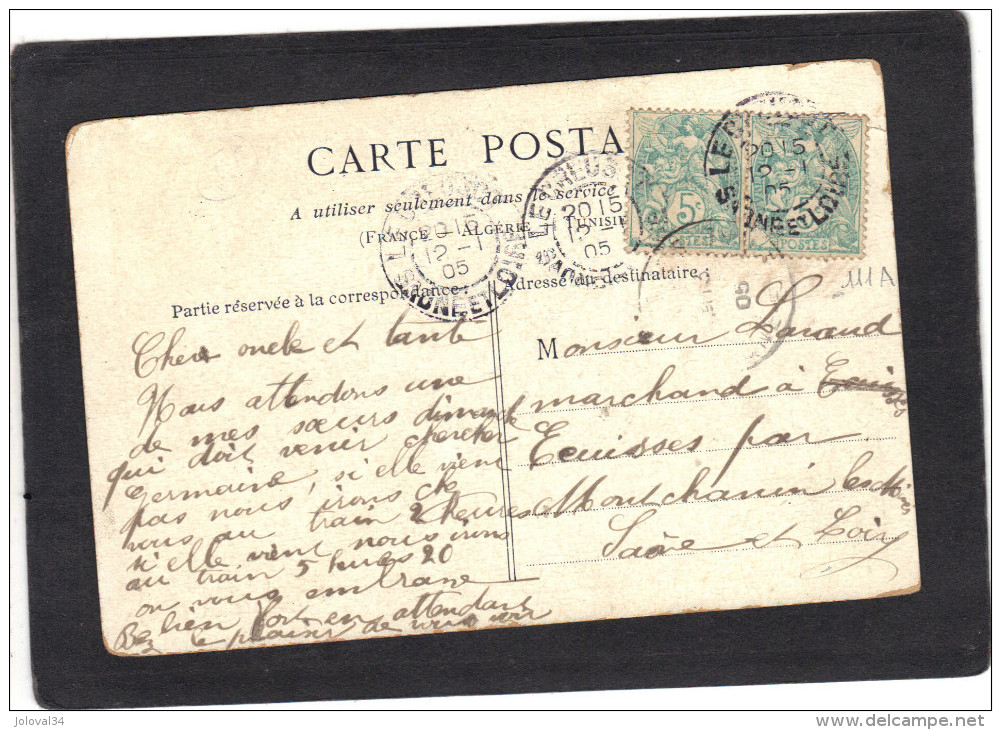 CARTE POSTA
A utiliser seulement dans le service
(FRANCE ALGERIE TUNISIE
Partie réservée à la correspondance
Adresse du destinataire
LE
20 15
12 -1
05
SAONE ET LOIRE
LE CREUS
20 15
12 -
05
SAONE
LE CREUSOT
20 15
12 -1
05
SAONE ET LOIRE
5c
POSTES
POSTES
111A
Cher oncle et tante
Nous attendons une
de mes sœurs dimanche
qui doit venir chercher
Germaine, si elle vient
pas nous irons che
vous au train 2 heures
si elle vient nous irons
au train 5 heures 20
on vous embrasse
bien fort en attendant
le plaisir de vous voir
Monsieur Laraud
marchand à
Ecuisses par
Montchanin les Mines
Saône et Loire
joloval34
www.delcampe.net